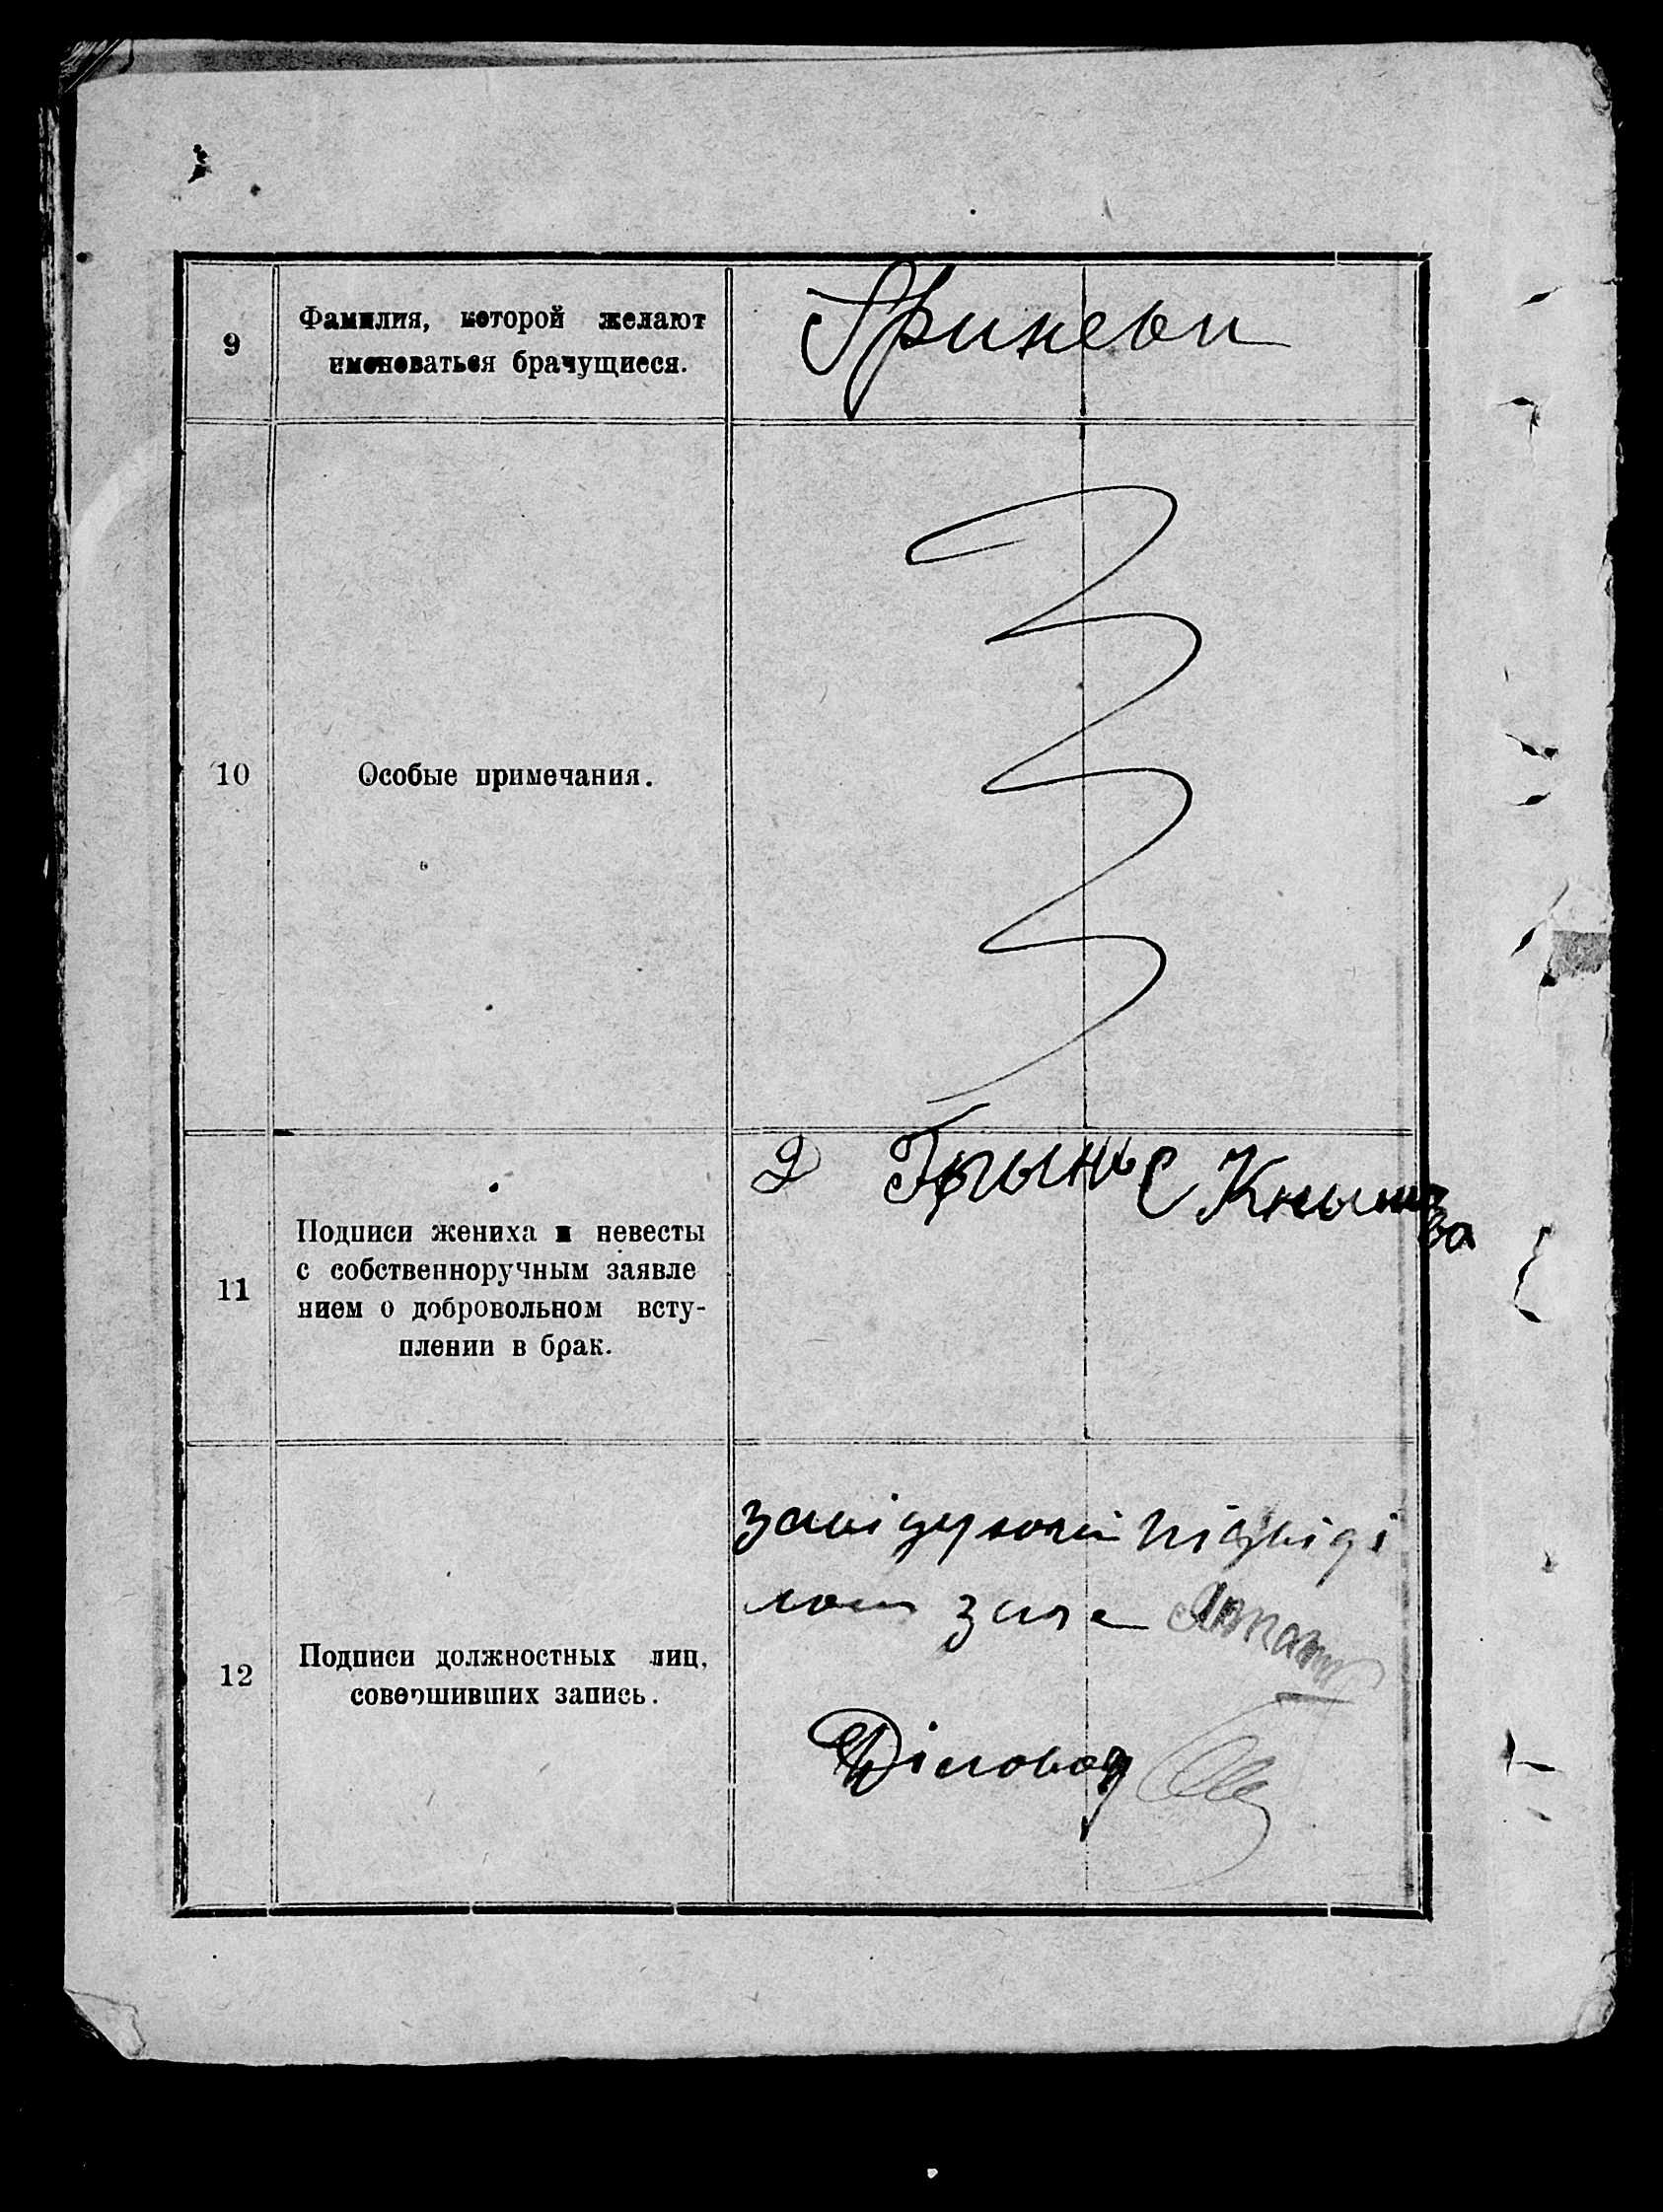 9
Фамилия, которой желают
именоваться брачущиеся.
Гриневи
10
Особые примечания.
11
Подписи жениха и невесты
с собственноручным заявле
нием о добровольном всту-
плении в брак.
Д Грынь С Кныш
ва
12
Подписи должностных лиц,
совершивших запись.
завідуючий підвіді
лом загс
Діловод